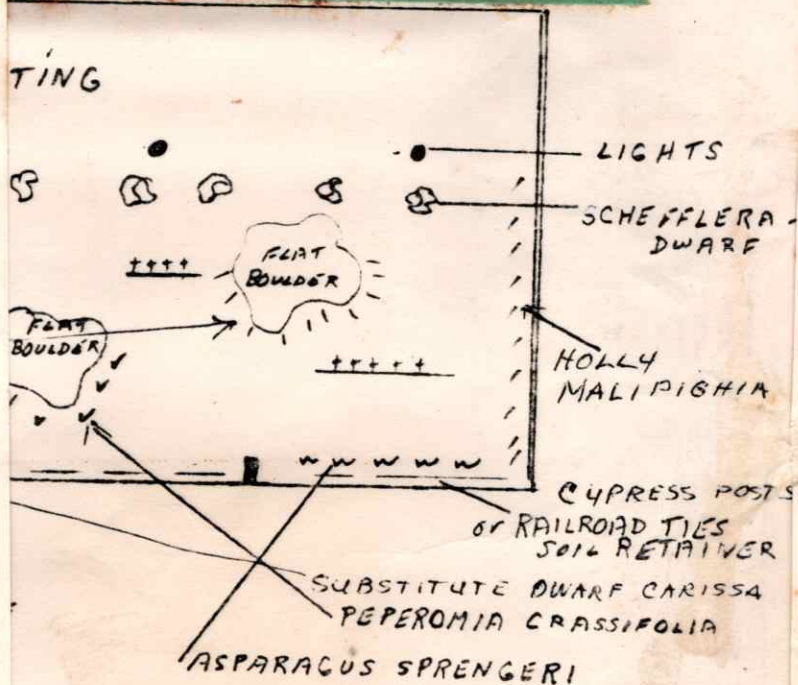 TING
LIGHTS
SCHEFFLERA -
DWARF
FLAT
BOULDER
FLAT
BOULDER
HOLLY
MALIPIGHIA
CYPRESS POSTS
or RAILROAD TIES
SOIL RETAINER
SUBSTITUTE DWARF CARISSA
PEPEROMIA CRASSIFOLIA
ASPARAGUS SPRENGERI